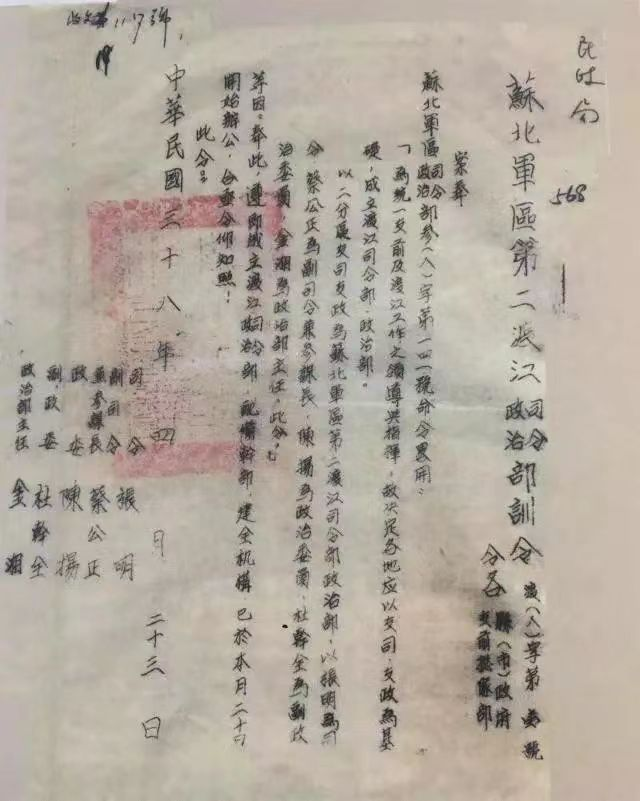 民政局
568
蘇北軍區第二渡江司令政治部訓令
渡(人)字第 號
令各縣(市)政府
支前指揮部
案奉
蘇北軍區司令政治部參(人)字第一四一號命令畧開:
「為統一支前及渡江工作之領導與指揮,故決定各地应以支司、支政為基
礎,成立渡江司令部、政治部。
以二分區支司支政為蘇北軍區第二渡江司令部政治部,以張明為司
令,蔡公正為副司令兼參謀長,陳揚為政治委員,杜幹全為副政
治委員,金湘為政治部主任。此令。」
等因。奉此,遵即成立渡江司令政治部,配備幹部,建全机構,已於本月二十日
開始辦公,合亟令仰知照!
此令:
司令 張明
副司令兼參謀長 蔡公正
政委 陳揚
副政委 杜幹全
政治部主任 金湘
中華民國三十八年四月二十三日
117號